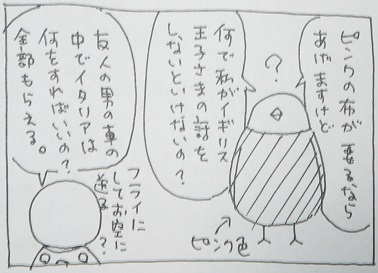 ピンクの布が要るなら
あげますけど
?
何で私がイギリス
王子さまの話を
しないといけないの?
ピンク色
友人の男の車の
中でイタリアは
何をすればいいの?
全部もらえる。
フライに
してお空に
送る?